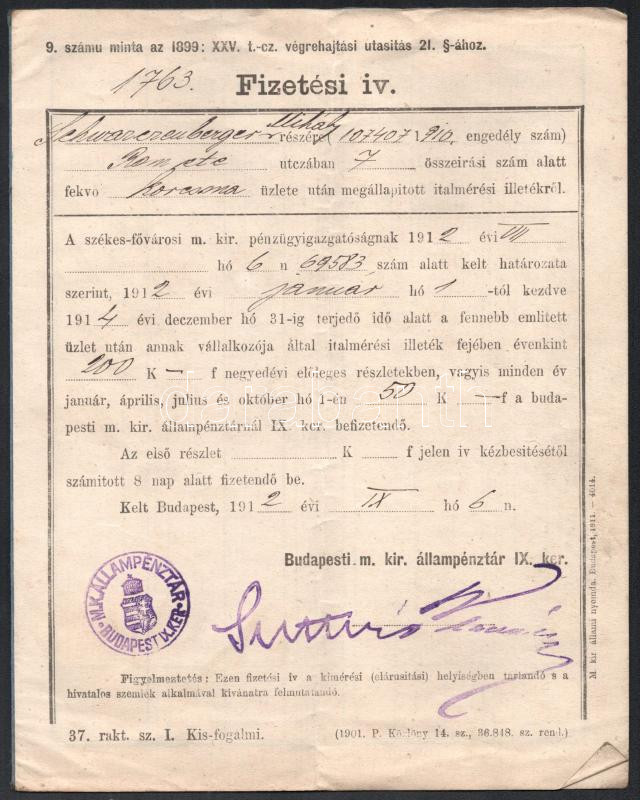 9. számu minta az 1899: XXV. t.-cz. végrehajtási utasitás 21. §-ához.
1763.
Fizetési iv.
Schwarczenberger Mihály részére (107407 1910. engedély szám)
utczában 7 összeirási szám alatt
fekvo korcsma üzlete után megállapitott italmérési illetékről.
A székes-fővárosi m. kir. pénzügyigazgatóságnak 1912 évi VIII
hó 6 n 69583 szám alatt kelt határozata
szerint, 1912 évi január hó 1 -tól kezdve
1914 évi deczember hó 31-ig terjedő idő alatt a fennebb emlitett
üzlet után annak vállalkozója által italmérési illeték fejében évenkint
200 K — f negyedévi előleges részletekben, vagyis minden év
január, április, julius és október hó 1-én 50 K — f a buda-
pesti m. kir. állampénztárnál IX. ker. befizetendő.
Az első részlet K f jelen iv kézbesitésétől
számitott 8 nap alatt fizetendő be.
Kelt Budapest, 1912 évi IX hó 6 n.
Budapesti m. kir. állampénztár IX. ker.
M.K.ÁLLAMPÉNZTÁR
BUDAPEST IX.KER.
Figyelmeztetés: Ezen fizetési iv a kimérési (elárusitási) helyiségben tartandó s a
hivatalos szemlék alkalmával kivánatra felmutatandó.
37. rakt. sz. I. Kis-fogalmi.
(1901. P. Közlöny 14. sz., 36.848. sz. rend.)
M. kir. állami nyomda. Budapest, 1911. — 4014.